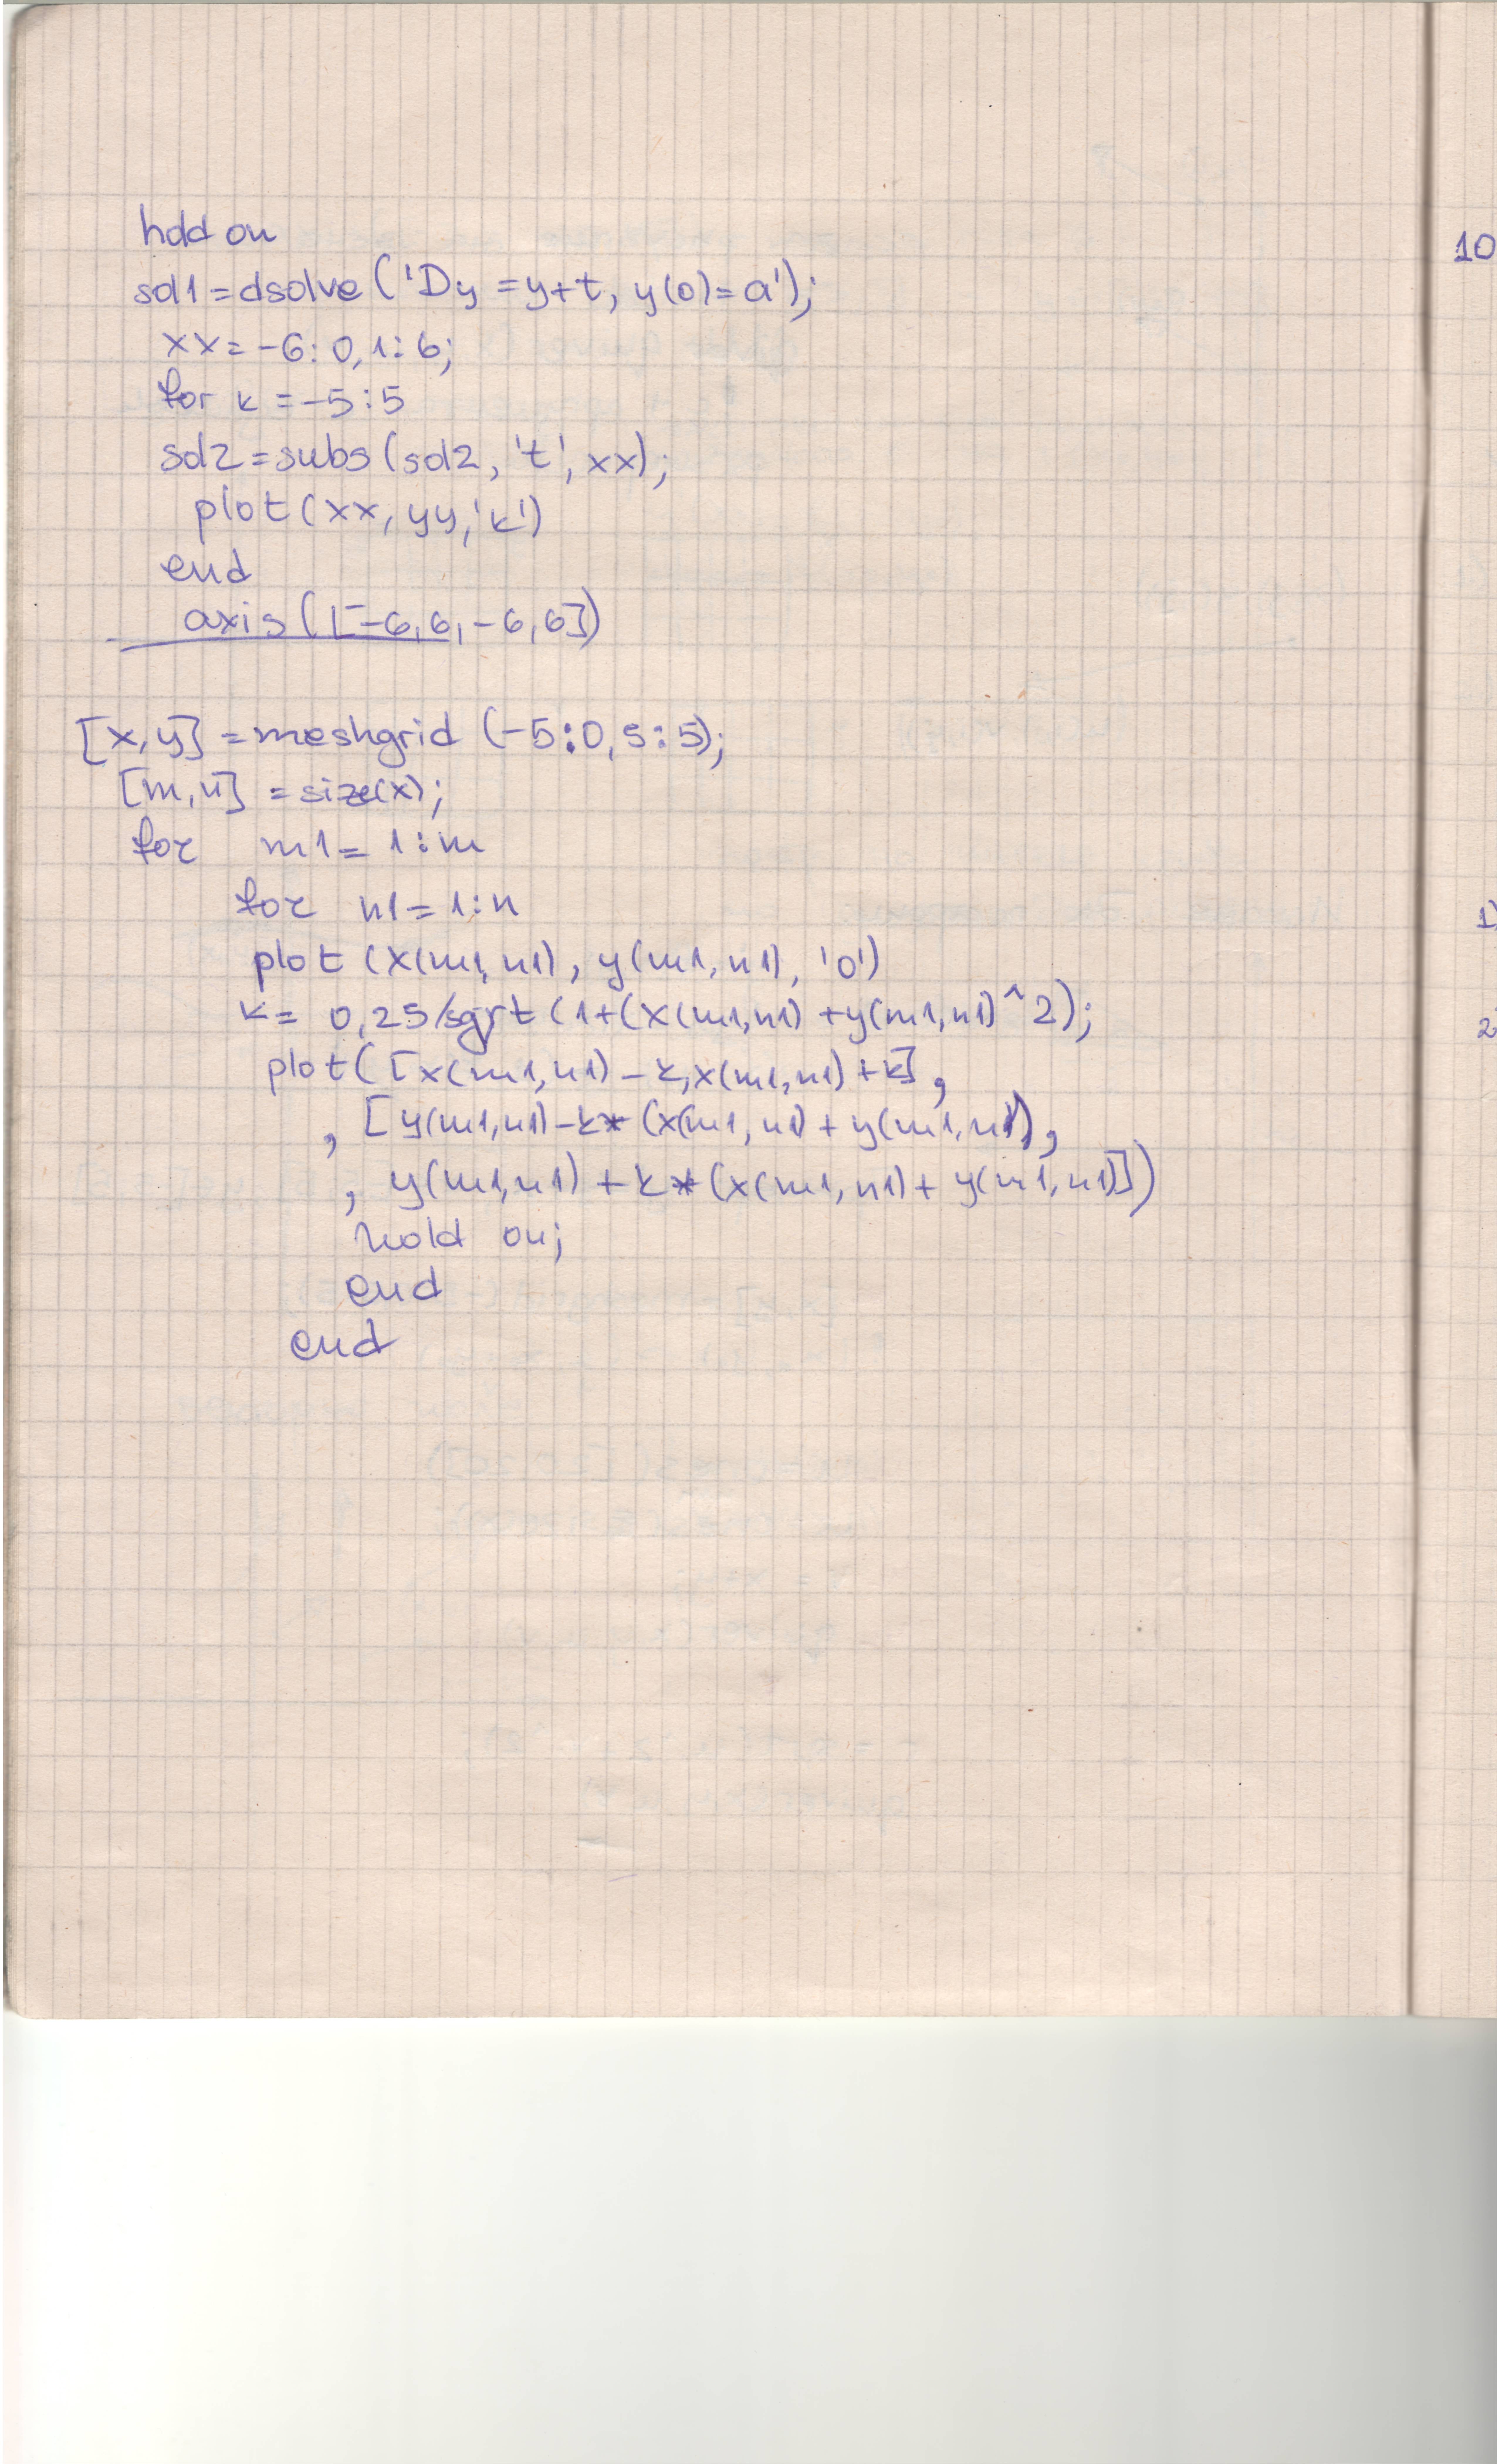 hold on
sol1=dsolve('Dy=y+t, y(0)=a');
xx=-6:0,1:6;
for k=-5:5
sol2=subs(sol2,'t',xx);
plot(xx,yy,'k')
end
axis([-6,6,-6,6])
[x,y]=meshgrid(-5:0,5:5);
[m,n]=size(x);
for m1=1:m
for n1=1:n
plot(x(m1,n1),y(m1,n1),'o')
k=0,25/sqrt(1+(x(m1,n1)+y(m1,n1)^2);
plot([x(m1,n1)-k,x(m1,n1)+k],
,[y(m1,n1)-k*(x(m1,n1)+y(m1,n1)),
,y(m1,n1)+k*(x(m1,n1)+y(m1,n1)])
hold on;
end
end
10
1)
2